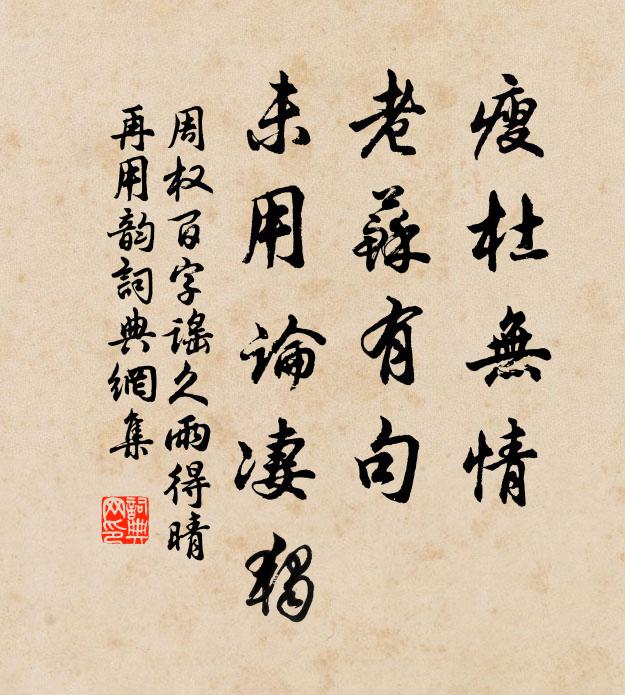 瘦杜無情
老蘇有句
未用論凄独
周权百字謠久雨得晴
再用韵詞典網集
詞典
网印